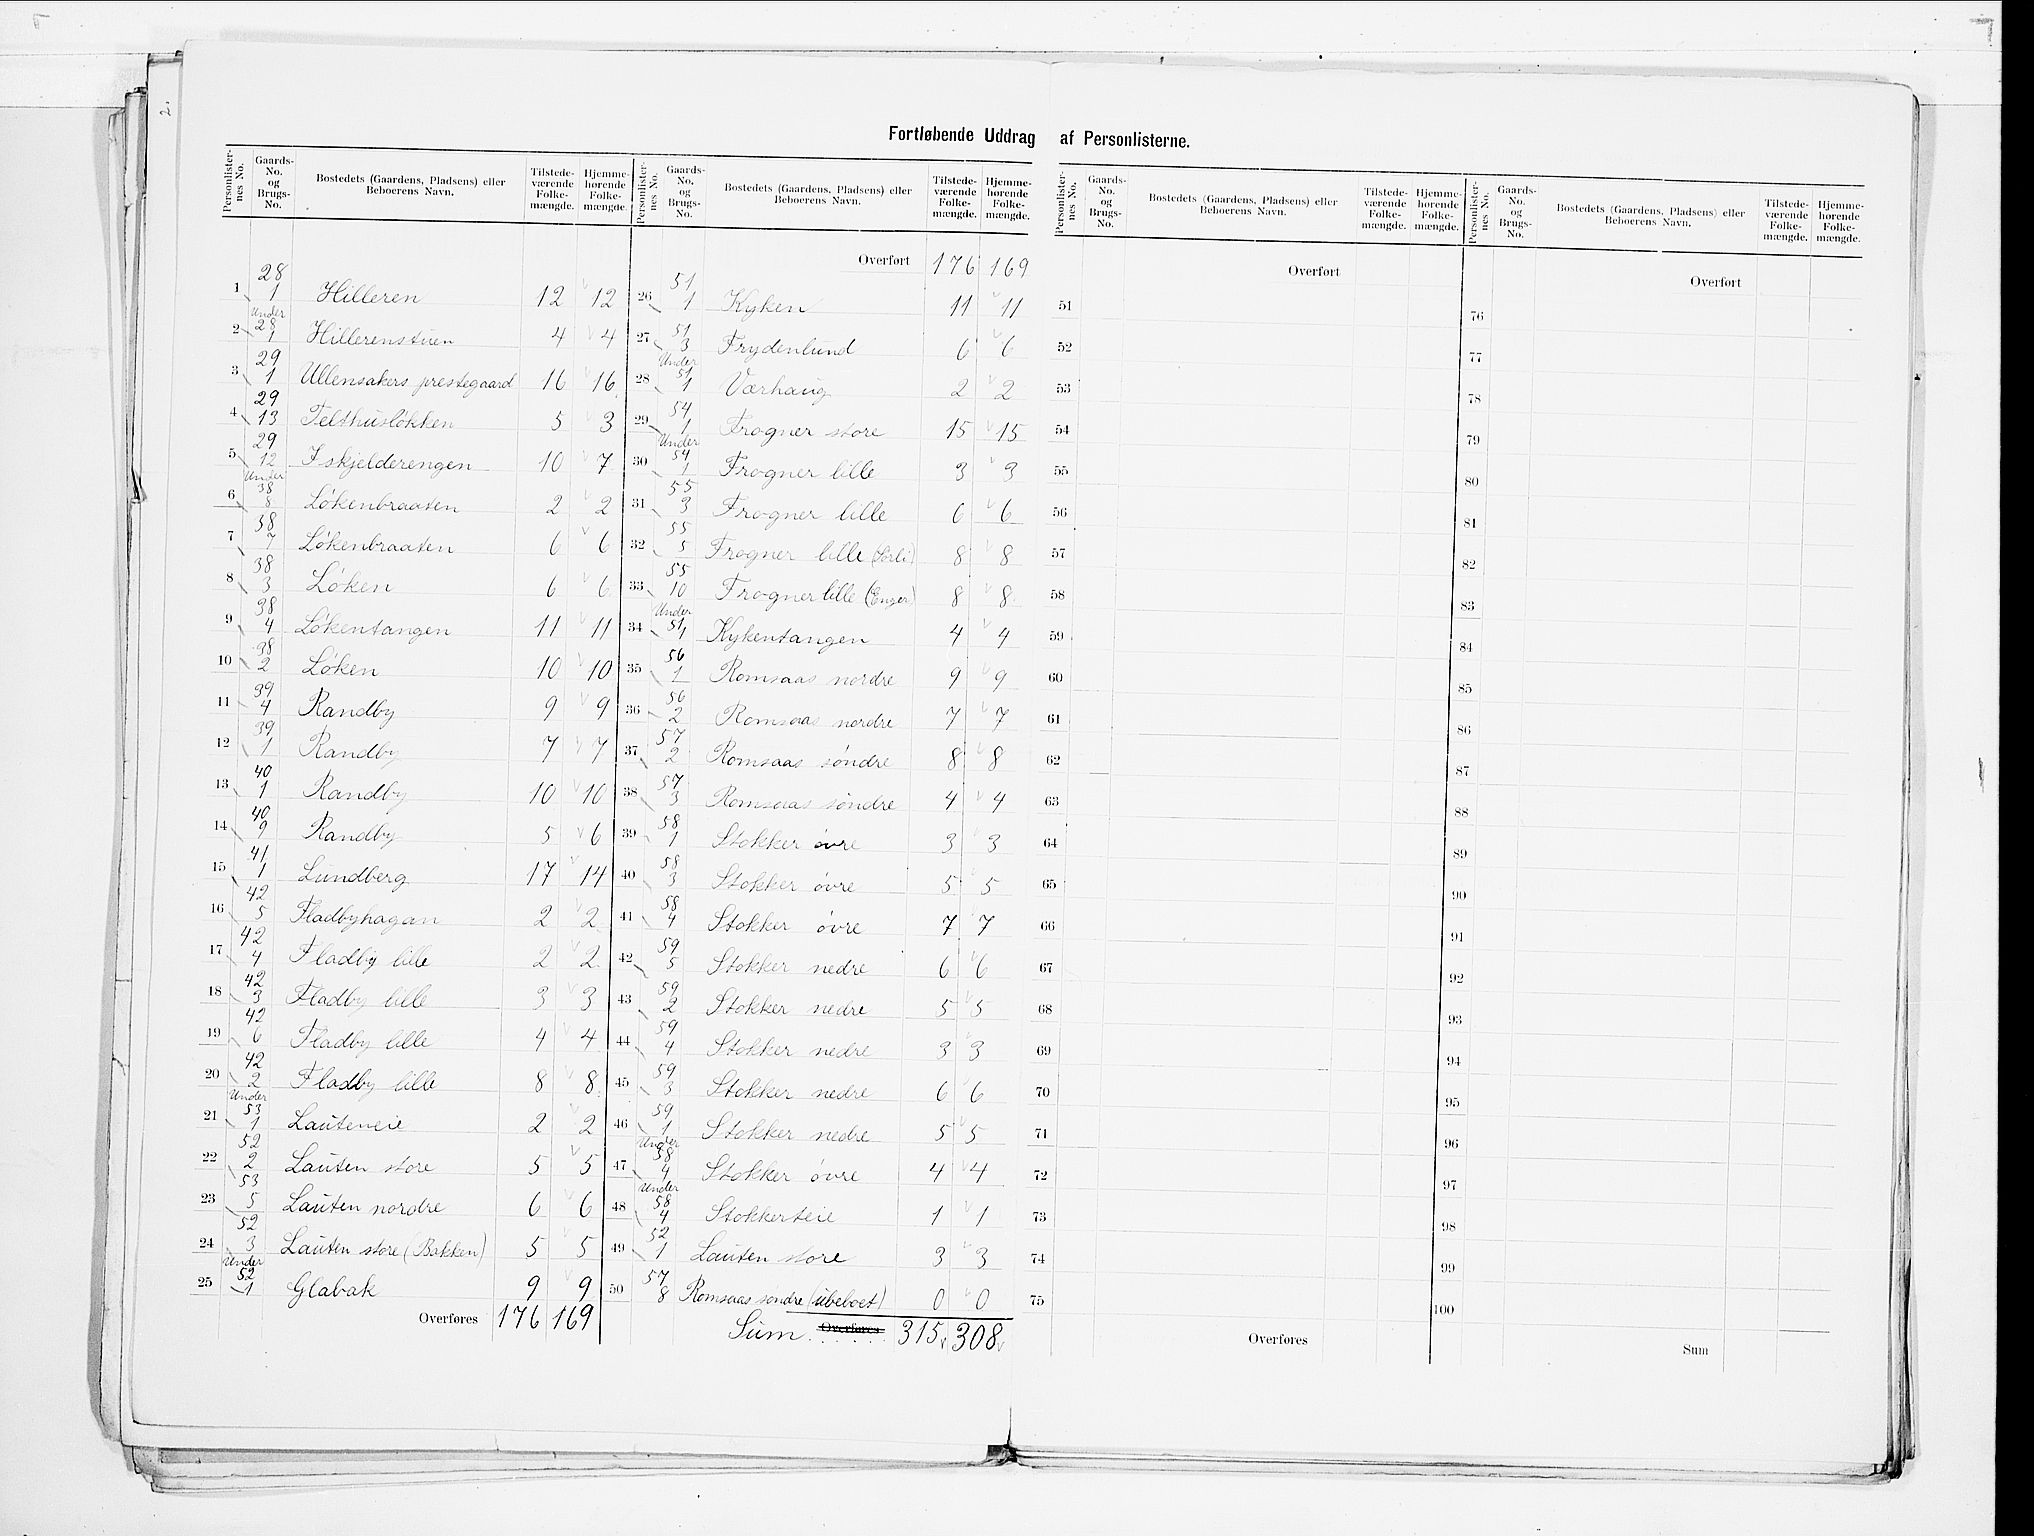 Fortløbende Uddrag af Personlisterne.
Personlisternes No. | Gaards-No. og Brugs-No. | Bostedets (Gaardens, Pladsens) eller Beboerens Navn. | Tilstedeværende Folkemængde. | Hjemmehørende Folkemængde.
1 28/1 Hilleren 12 12
2 Under 28/1 Hillerenstuen 4 4
3 29/1 Ullensakers prestegaard 16 16
4 29/13 Telthusløkken 5 3
5 29/12 Iskjelderengen 10 7
6 Under 38/8 Løkenbraaten 2 2
7 38/7 Løkenbraaten 6 6
8 38/3 Løken 6 6
9 38/4 Løkentangen 11 11
10 38/2 Løken 10 10
11 39/4 Randby 9 9
12 39/1 Randby 7 7
13 40/1 Randby 10 10
14 40/9 Randby 5 6
15 41/1 Lundberg 17 14
16 42/5 Fladbyhagan 2 2
17 42/4 Fladby lille 2 2
18 42/3 Fladby lille 3 3
19 42/6 Fladby lille 4 4
20 42/2 Fladby lille 8 8
21 Under 53/1 Lauteneie 2 2
22 52/2 Lauten store 5 5
23 53/5 Lauten nordre 6 6
24 52/3 Lauten store (Bakken) 5 5
25 Under 52/1 Glabak 9 9
Overføres 176 169
Personlisternes No. | Gaards-No. og Brugs-No. | Bostedets (Gaardens, Pladsens) eller Beboerens Navn. | Tilstedeværende Folkemængde. | Hjemmehørende Folkemængde.
Overført 176 169
26 51/1 Kyken 11 11
27 51/3 Frydenlund 6 6
28 Under 51/1 Værhaug 2 2
29 54/1 Frogner store 15 15
30 Under 54/1 Frogner lille 3 3
31 55/3 Frogner lille 6 6
32 55/5 Frogner lille (Sorli) 8 8
33 55/10 Frogner lille (Enger) 8 8
34 Under 51/1 Kykentangen 4 4
35 56/1 Romsaas nordre 9 9
36 56/2 Romsaas nordre 7 7
37 57/2 Romsaas søndre 8 8
38 57/3 Romsaas søndre 4 4
39 58/1 Stokker øvre 3 3
40 58/3 Stokker øvre 5 5
41 58/4 Stokker øvre 7 7
42 59/5 Stokker nedre 6 6
43 59/2 Stokker nedre 5 5
44 59/4 Stokker nedre 3 3
45 59/3 Stokker nedre 6 6
46 59/1 Stokker nedre 5 5
47 Under 58/4 Stokker øvre 4 4
48 Under 58/4 Stokkerteie 1 1
49 52/1 Lauten store 3 3
50 57/8 Romsaas søndre (ubeboet) 0 0
Sum Overføres 315 308
Personlisternes No. | Gaards-No. og Brugs-No. | Bostedets (Gaardens, Pladsens) eller Beboerens Navn. | Tilstedeværende Folkemængde. | Hjemmehørende Folkemængde.
Overført
51
52
53
54
55
56
57
58
59
60
61
62
63
64
65
66
67
68
69
70
71
72
73
74
75
Overføres
Personlisternes No. | Gaards-No. og Brugs-No. | Bostedets (Gaardens, Pladsens) eller Beboerens Navn. | Tilstedeværende Folkemængde. | Hjemmehørende Folkemængde.
Overført
76
77
78
79
80
81
82
83
84
85
86
87
88
89
90
91
92
93
94
95
96
97
98
99
100
Sum